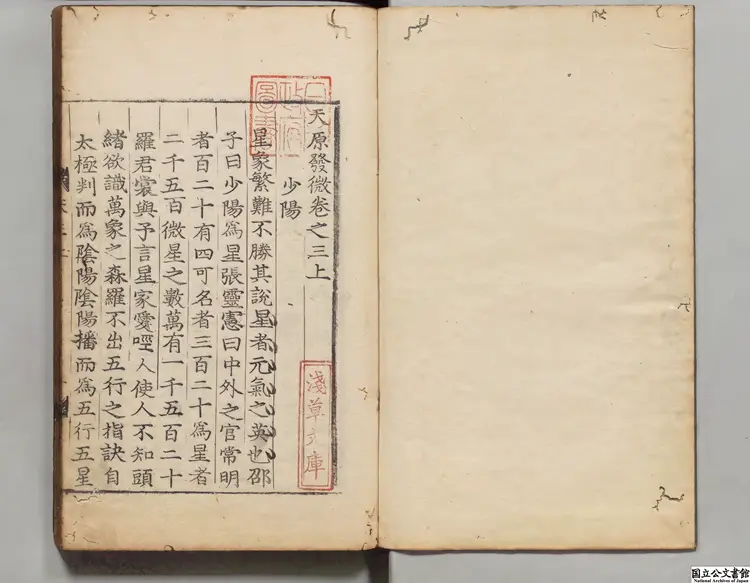 天原發微卷之三上
少陽
星象繁難不勝其說星者元氣之英也邵
子曰少陽爲星張靈憲曰中外之官常明
者百二十有四可名者三百二十爲星者
二千五百微星之數萬有一千五百二十
羅君裳與予言星家愛啞人使人不知頭
緒欲識萬象之森羅不出五行之指訣自
太極判而爲陰陽陰陽播而爲五行五星
淺草文庫
国立公文書館
National Archives of Japan